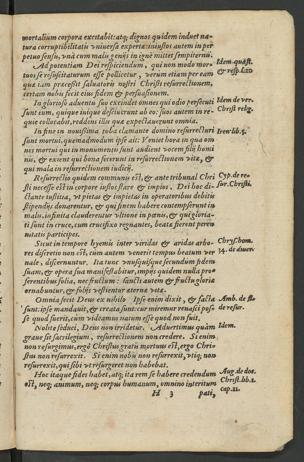 mortalium corpora excitabit: atq; dignos quidem induet na-
tura corruptibilitatis vniuersæ experta: iniustos autem in per
petuo sensu, vnà cum malis genijs in ignē mittet sempiternū.
Ad potentiam Dei respiciendum, qui non modo mor-
Idem quæst.
tuos se resuscitaturum esse pollicetur, verum etiam per eam
& resp.
quæ iam præcessit saluatoris nostri Christi resurrectionem,
certam nobis fecit eius fidem & persuasionem.
In glorioso aduentu suo excindet omnes qui odio persecuti
Idem de ver.
sunt eum, quique iniquè desciuerunt ab eo: suos autem in re-
Christ. relig.
quie collocabit, reddens illis quæ expectauerunt omnia.
In fine in nouissima tuba clamante domino resurrecturi
Iren. lib.5.
sunt mortui, quemadmodum ipse ait: Veniet hora in qua om
nes mortui qui in monumentis sunt audient vocem filij homi
nis, & exient qui bona fecerunt in resurrectionem vitæ, &
qui mala in resurrectionem iudicij.
Resurrectio quidem communis est, & ante tribunal Chri
Cyp. de re-
sti necesse est in corpore iustos stare & impios. Dei hoc di-
sur. Christi.
ctante iustitia, vt pietas & impietas in operatoribus debitis
stipendijs donarentur, & qui finem habere contempserunt in
malis, infinita clauderentur vltione in pœnis, & qui gloria-
ti sunt in cruce, cum crucifixo regnantes, beata fierent peren-
nitatis participes.
Sicut in tempore hyemis inter virides & aridas arbo-
Chrys. hom.
res discretio non est, cum autem venerit tempus beatum ver
34. de auer.
nale, discernuntur. Ita tunc vnusquisque secundum fidem
suam, & opera sua manifestabitur, impijs quidem nulla pro-
ferentibus folia, nec fructum: sancti autem & fructu gloria
ornabuntur, & folijs vestientur æternæ vitæ.
Omnia fecit Deus ex nihilo. Ipse enim dixit, & facta
Amb. de fi-
sunt: ipse mandauit, & creata sunt: cur miremur renasci pos-
de resur.
se quod fuerit, cum videamus natum esse quod non fuit.
Nolite falli, Deus non irridetur. Aduertimus quàm
Idem.
graue sit sacrilegium, resurrectionem non credere. Si enim
non resurgimus, ergò Christus gratis mortuus est, ergo Chri-
stus non resurrexit. Si enim nobis non resurrexit, vtiq; non
resurrexit, qui sibi vt resurgeret non habebat.
Hoc itaque fides habet, atq; ita rem se habere credendum
Aug. de doc.
est, neq; animum, neq; corpus humanum, omnino interitum
Christ. lib.1.
cap.21.
H 3 pati,